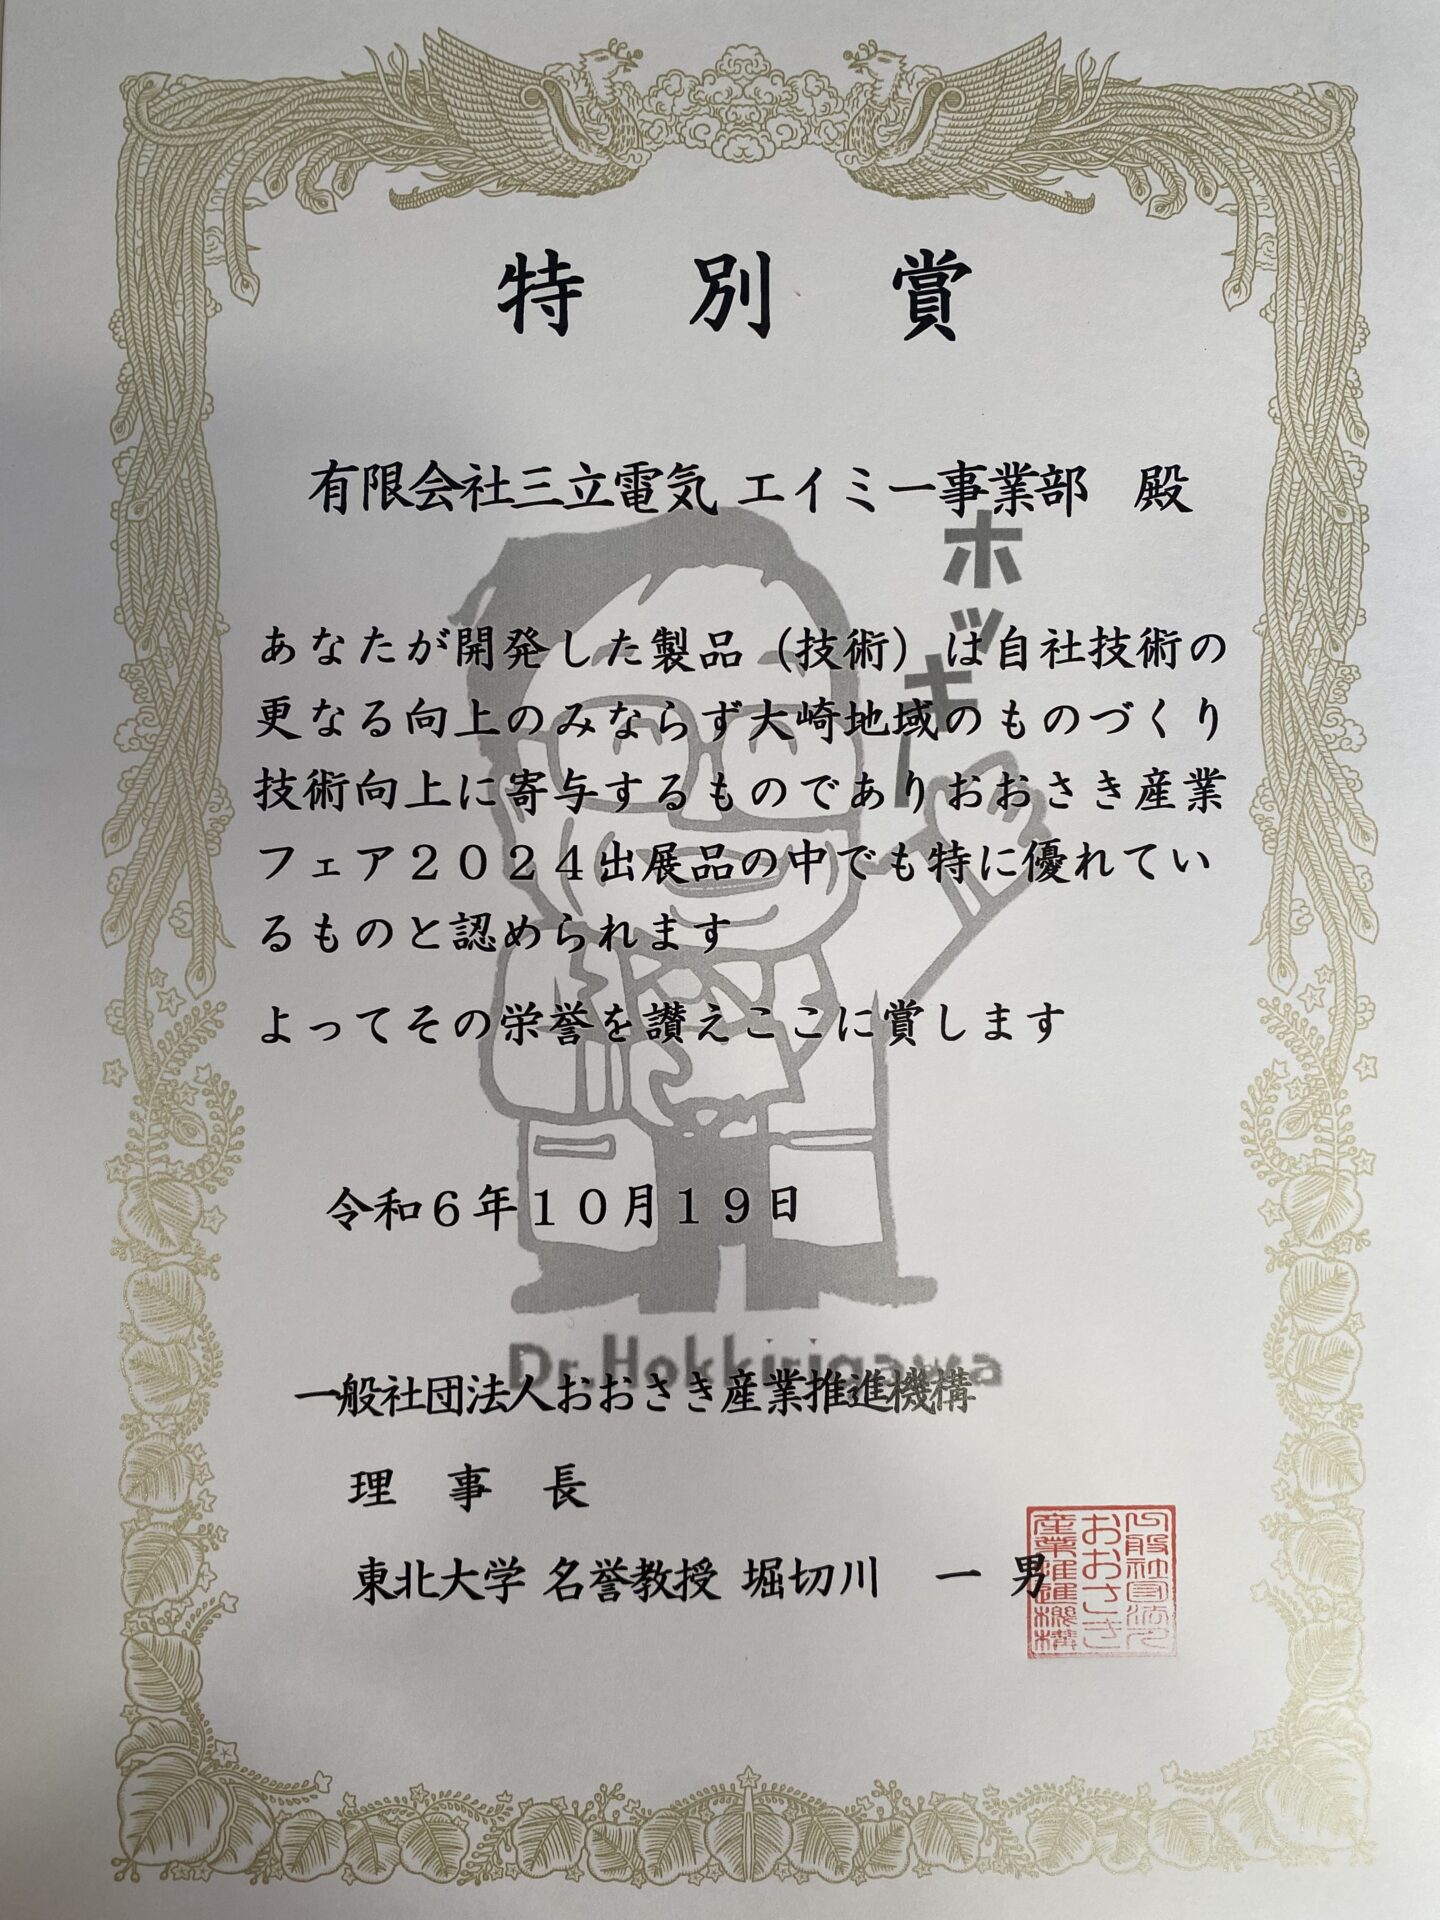 特別賞
有限会社三立電気 エイミー事業部 殿
ホッキー
あなたが開発した製品（技術）は自社技術の
更なる向上のみならず大崎地域のものづくり
技術向上に寄与するものでありおおさき産業
フェア２０２４出展品の中でも特に優れてい
るものと認められます
よってその栄誉を讃えここに賞します
令和６年１０月１９日
Dr.Hokkirigawa
一般社団法人おおさき産業推進機構
理事長
東北大学 名誉教授 堀切川 一男
一般社団法人
おおさき
産業推進機構